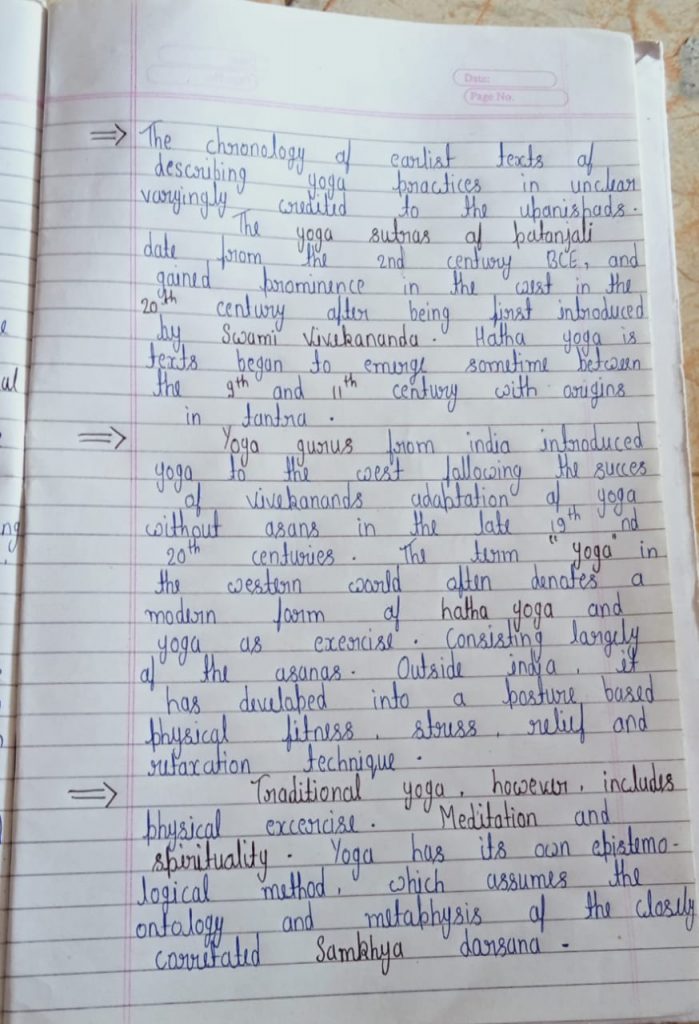 Date:
Page No.
⇒ The chronology of earlist texts of
describing yoga practices in unclear
varyingly credited to the upanishads.
The yoga sutras of patanjali
date from the 2nd century BCE, and
gained prominence in the west in the
20th century after being first introduced
by Swami Vivekananda. Hatha yoga is
texts began to emerge sometime between
the 9th and 11th century with origins
in tantra.
⇒ Yoga gurus from india introduced
yoga to the west following the succes
of vivekanands adaptation of yoga
without asans in the late 19th nd
20th centuries. The term "yoga" in
the western world often denotes a
modern form of hatha yoga and
yoga as exercise. Consisting largely
of the asanas. Outside india, it
has developed into a posture based
physical fitness, stress, relief and
retaxation technique.
⇒ Traditional yoga, however, includes
physical excercise. Meditation and
spirituality. Yoga has its own epistemo-
logical method, which assumes the
ontology and metaphysis of the closely
corretated Samkhya darsana.
al
ng